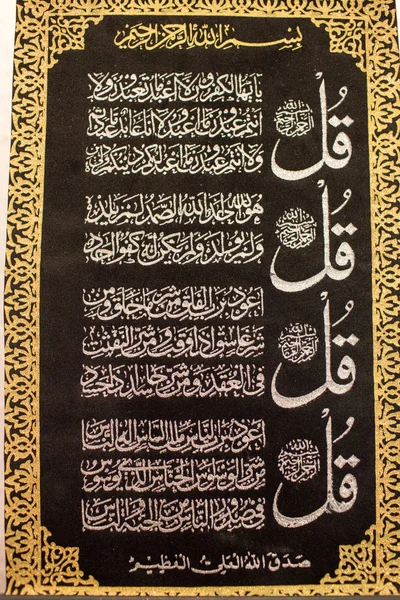 بسم الله الرحمن الرحيم
قل
بسم الله الرحمن الرحيم
يايها الكفرون لا اعبد ما تعبدون ولا
انتم عبدون ما اعبد ولا انا عابد ما عبدتم
ولا انتم عبدون ما اعبد لكم دينكم ولى دين
قل
بسم الله الرحمن الرحيم
هو الله احد الله الصمد لم يلد
ولم يولد ولم يكن له كفوا احد
قل
بسم الله الرحمن الرحيم
اعوذ برب الفلق من شر ما خلق ومن
شر غاسق اذا وقب ومن شر النفثت
فى العقد ومن شر حاسد اذا حسد
قل
بسم الله الرحمن الرحيم
اعوذ برب الناس ملك الناس اله الناس
من شر الوسواس الخناس الذى يوسوس
فى صدور الناس من الجنة والناس
صدق الله العلي العظيم